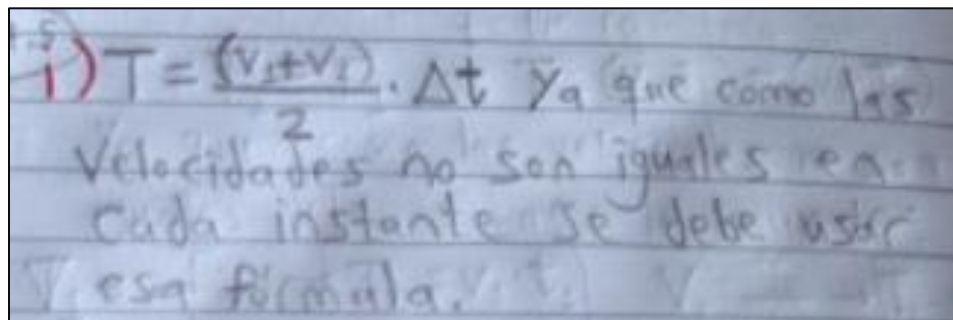 i) T = (V₁+V₂)/2 · Δt Ya que como las
Velocidades no son iguales en
Cada instante se debe usar
esa fórmula.